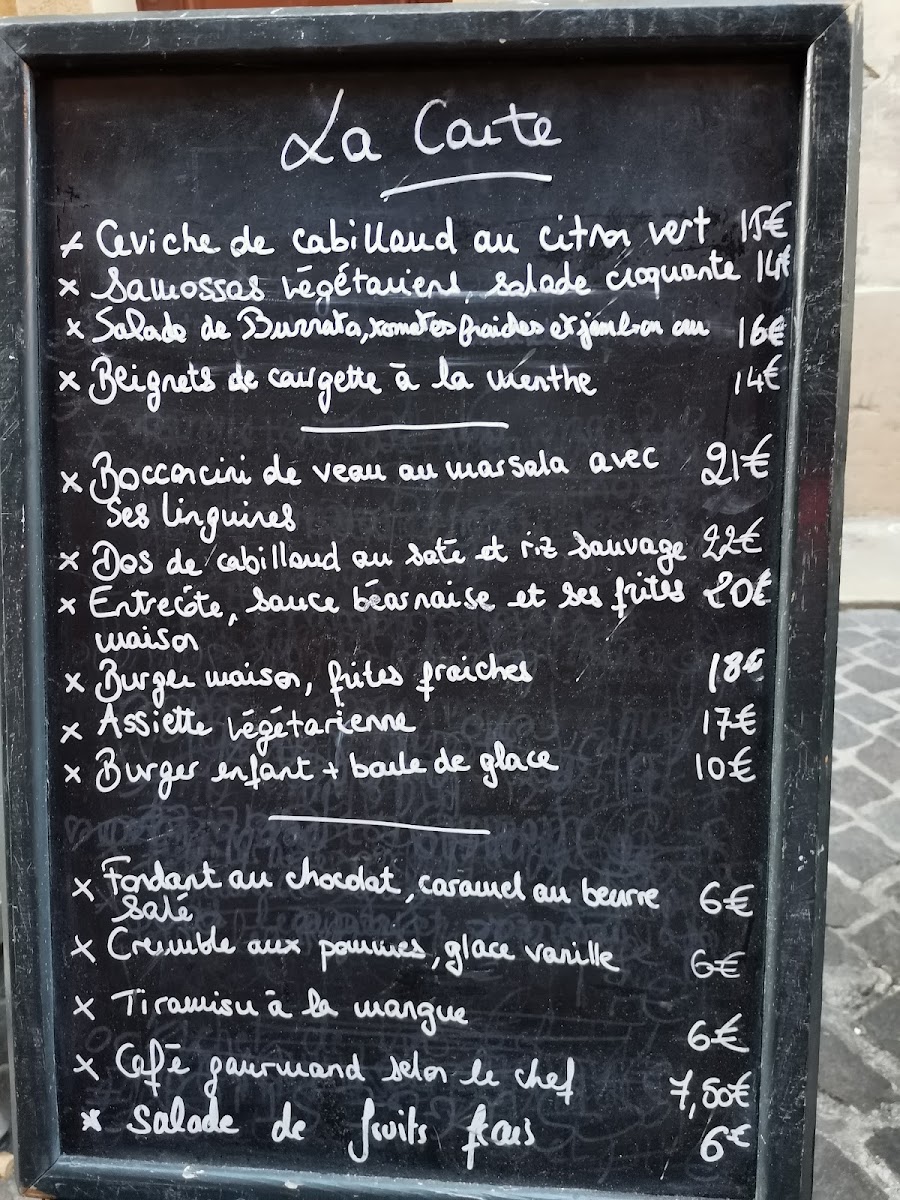 La Carte
x Ceviche de cabillaud au citron vert 15€
x Samossas végétariens, salade croquante 14€
x Salade de Burrata, tomates fraiches et jambon cru 16€
x Beignets de courgette à la menthe 14€
x Bocconcini de veau au marsala avec 21€
ses linguines
x Dos de cabillaud au saté et riz sauvage 22€
x Entrecôte, sauce béarnaise et ses frites 20€
maison
x Burger maison, frites fraiches 18€
x Assiette végétarienne 17€
x Burger enfant + boule de glace 10€
x Fondant au chocolat, caramel au beurre 6€
salé
x Crumble aux pommes, glace vanille 6€
x Tiramisu à la mangue 6€
x Café gourmand selon le chef 7,50€
x Salade de fruits frais 6€